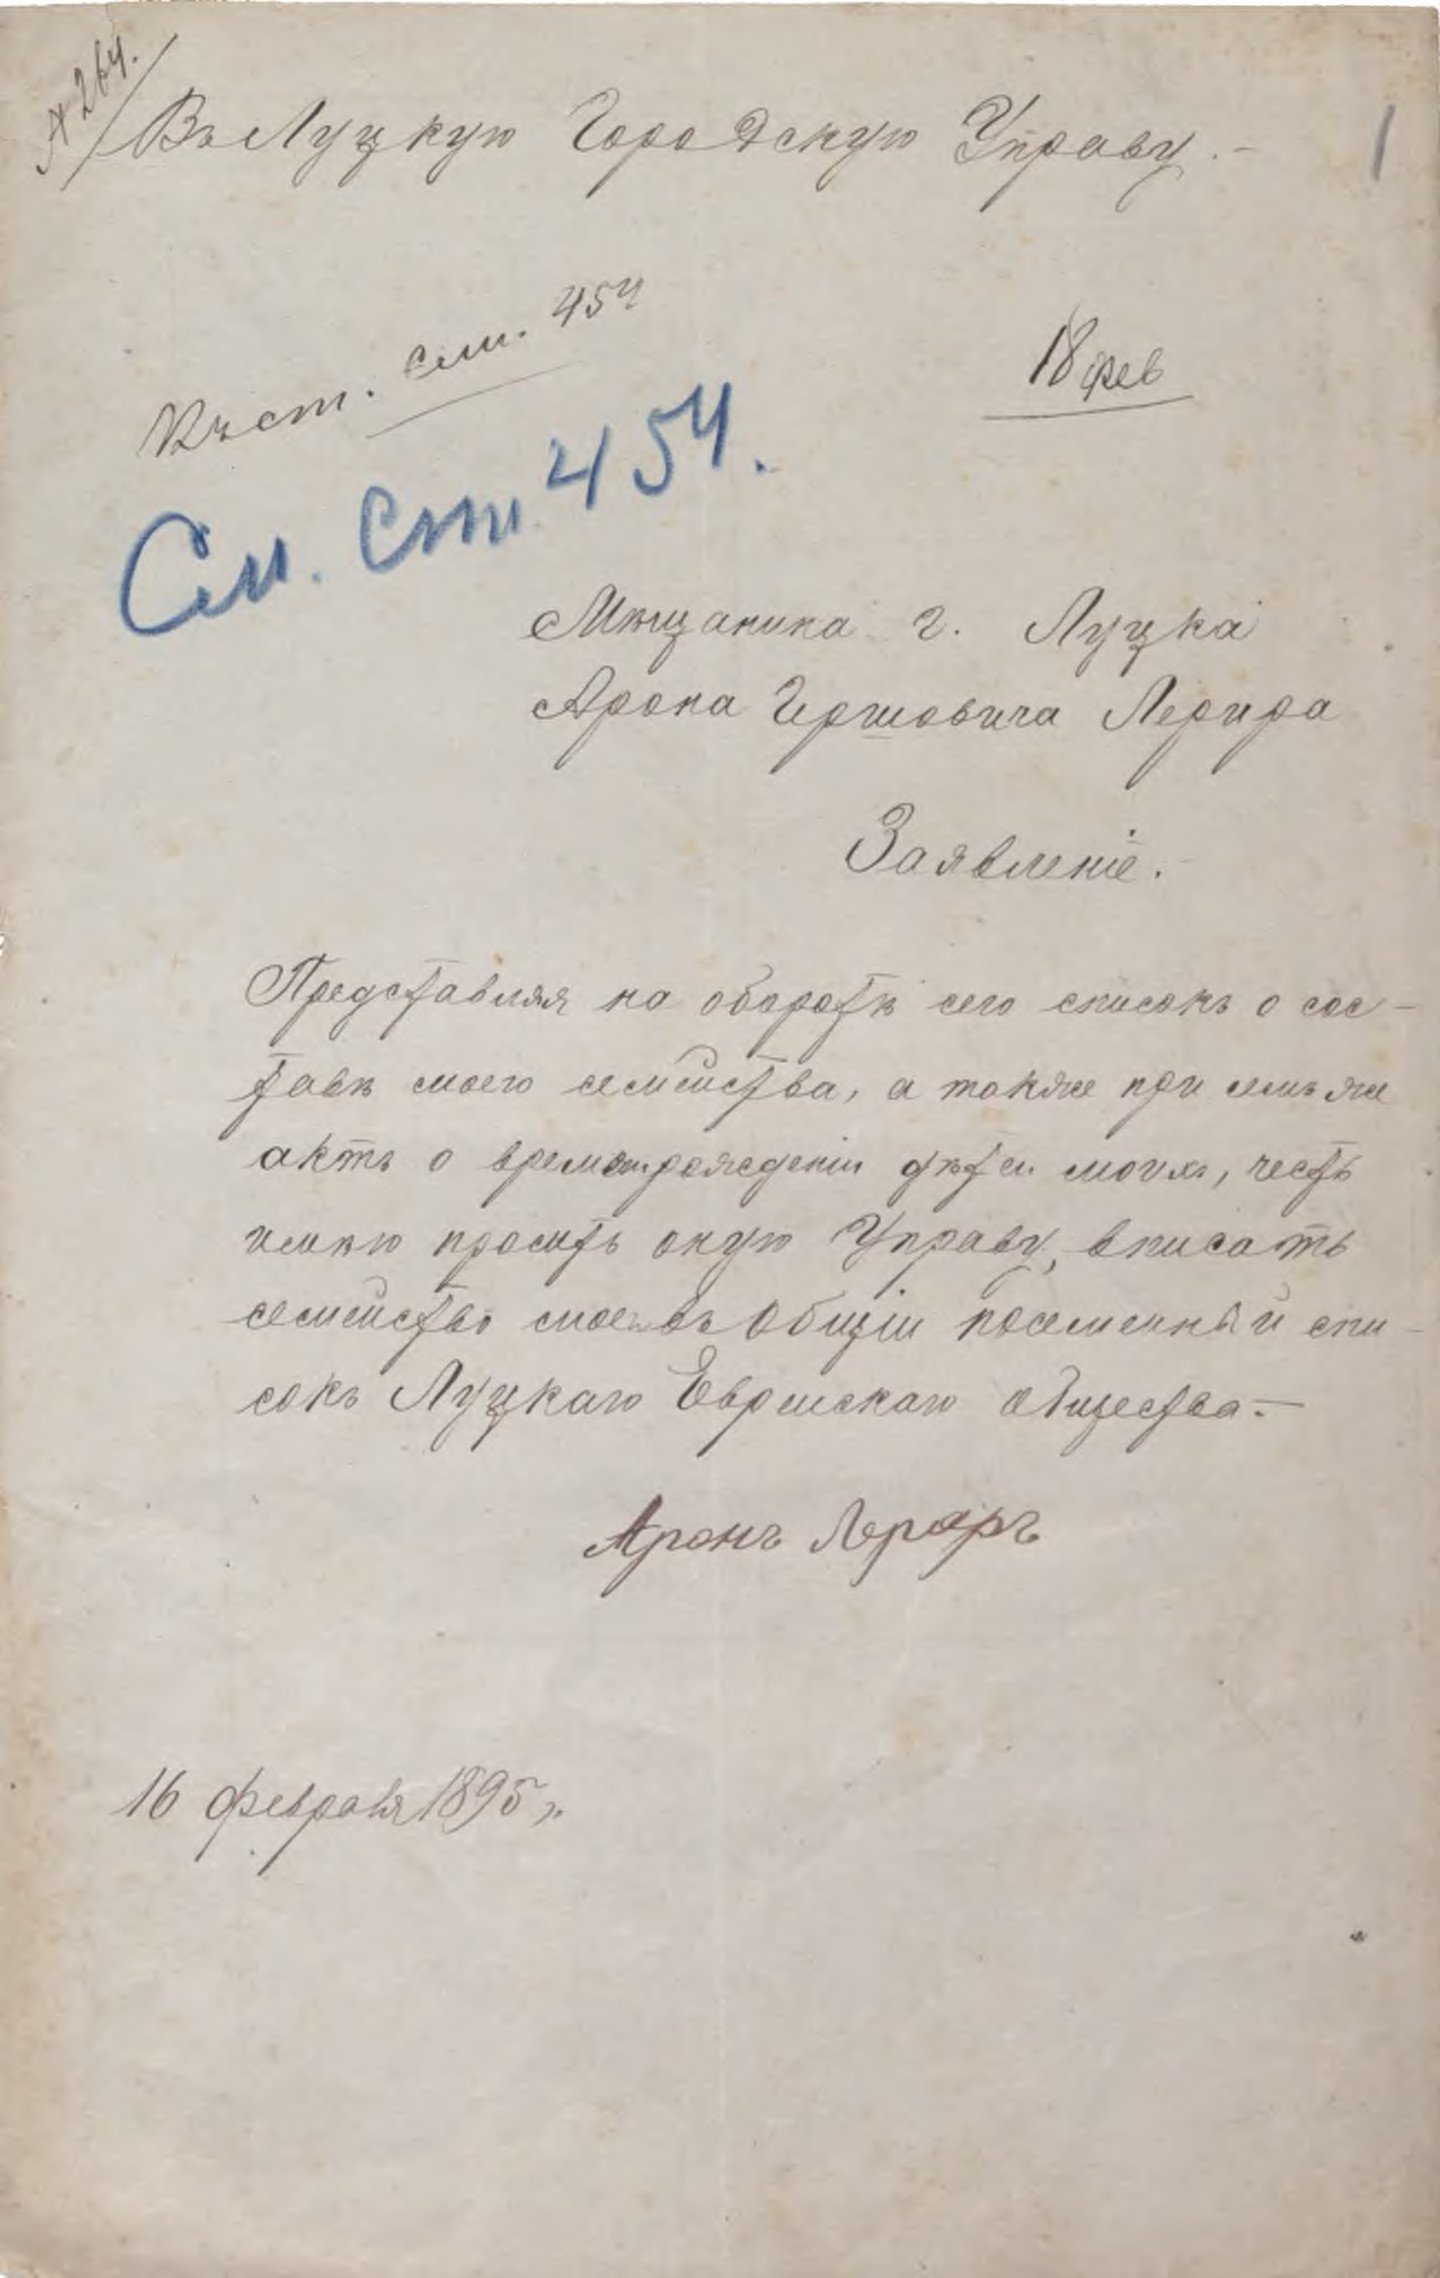 А 264.
Въ Луцкую Городскую Управу.-
1
Къ ст. см. 454
18 фев
См. ст. 454.
Мѣщанина г. Луцка
Арона Гершовича Лерера
Заявленіе.-
Представляя на оборотѣ сего списокъ о сос-
тавѣ моего семейства, а также при семъ же
актъ о времени рожденіи дѣтей моихъ, честь
имѣю просить оную Управу, вписать
семейство мое въ общій посемейный спи-
сокъ Луцкаго Еврейскаго общества.-
Аронъ Лереръ
16 февраля 1895 г.